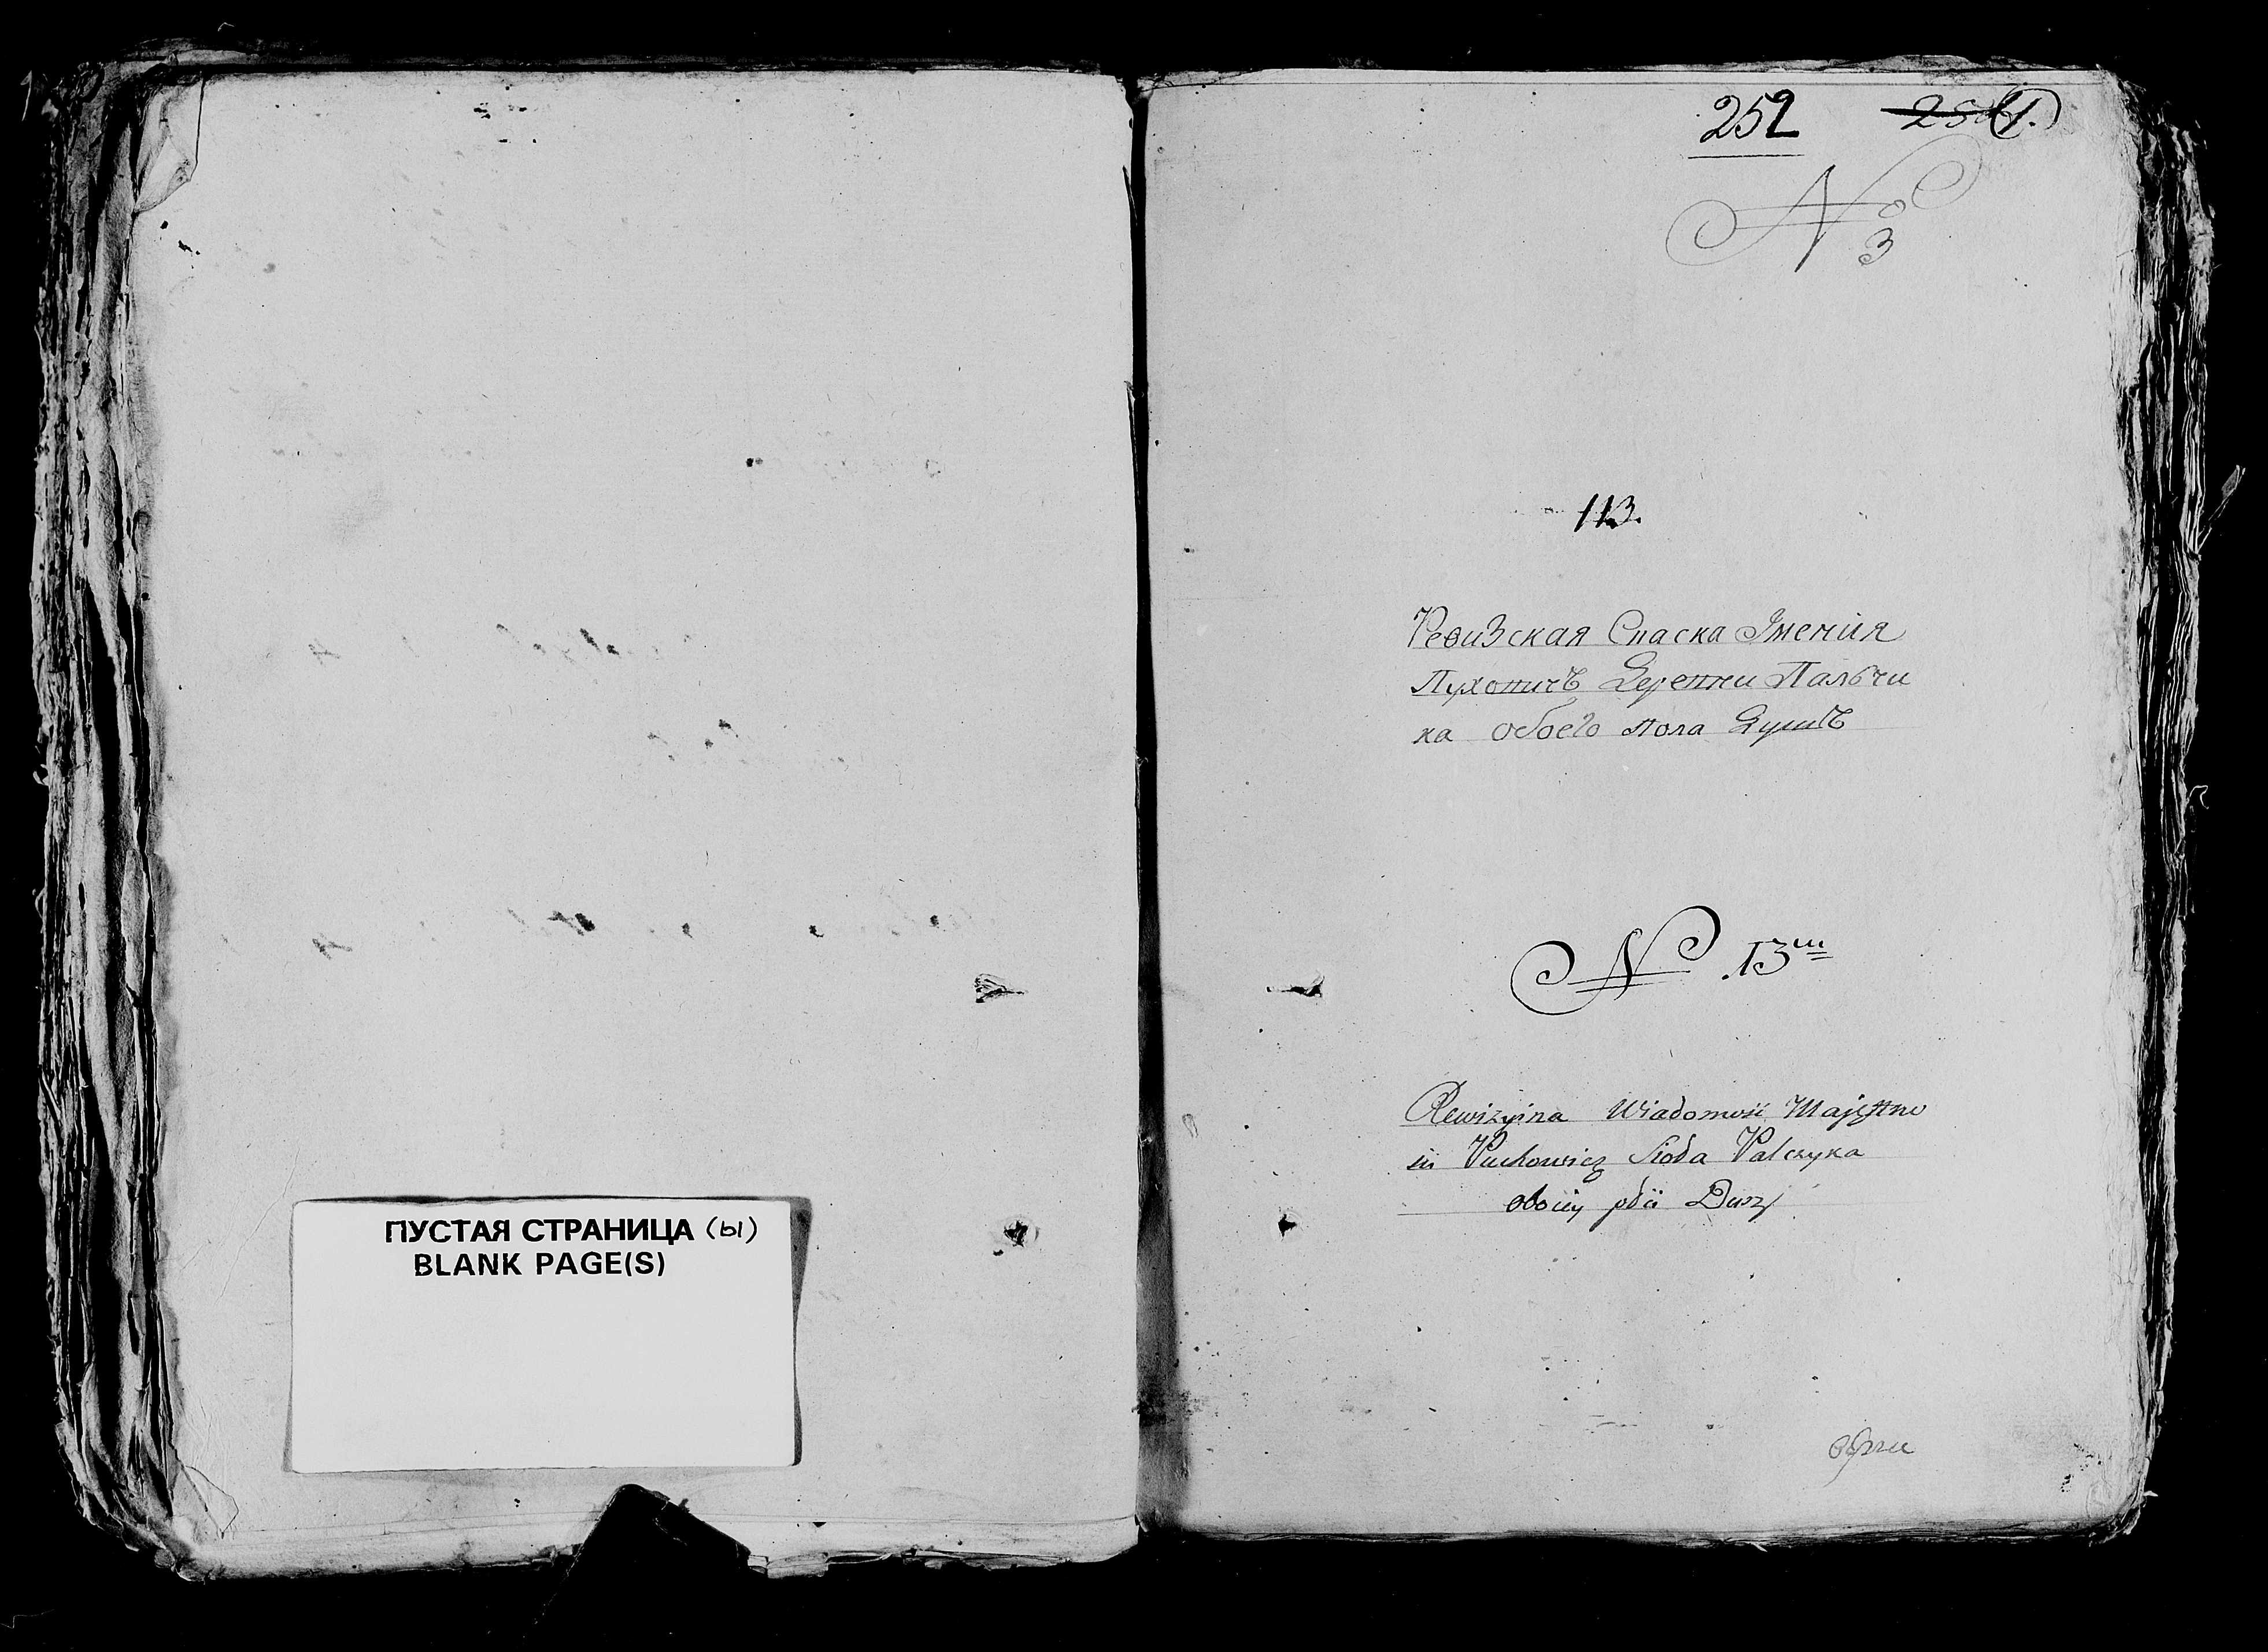 ПУСТАЯ СТРАНИЦА (ы)
BLANK PAGE(S)
252
№
3
113.
РевиЗская Спаска Имения
Пухович Деревни Пальчи
ка обоего пола Душъ
N 13
Rewizyina Wiadomość Majętno
ści Puchowicz Sioła Palczyka
oboiey płci Dusz